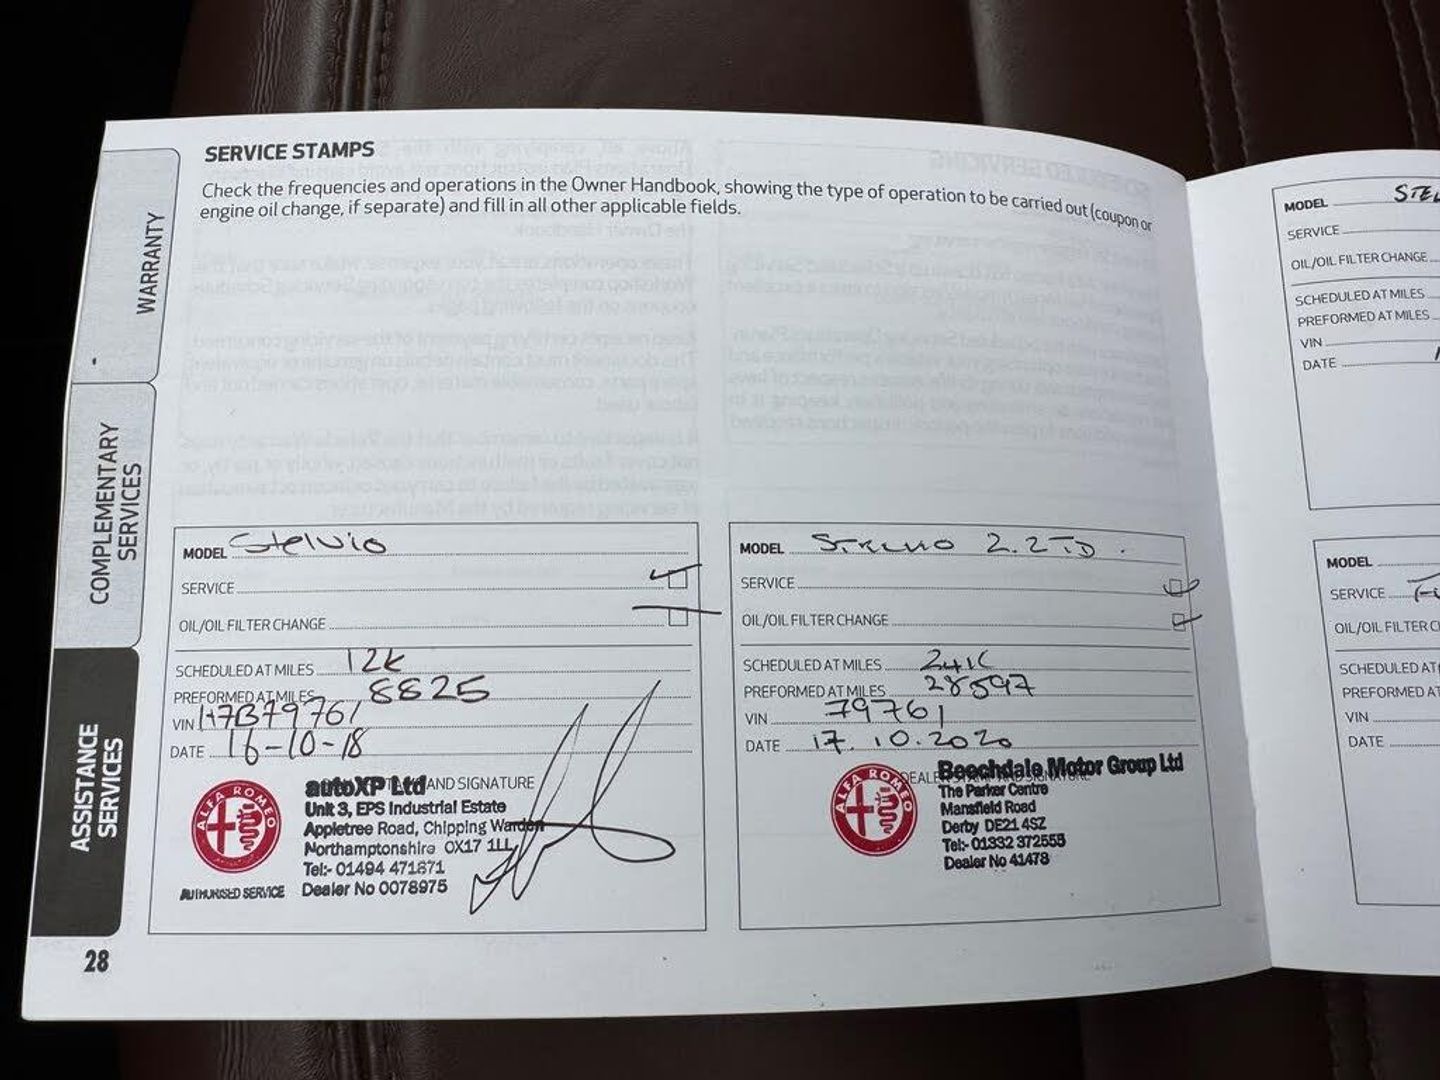 SERVICE STAMPS
Check the frequencies and operations in the Owner Handbook, showing the type of operation to be carried out (coupon or
engine oil change, if separate) and fill in all other applicable fields.
WARRANTY
COMPLEMENTARY
SERVICES
ASSISTANCE
SERVICES
MODEL Stelvio
SERVICE
OIL/OIL FILTER CHANGE
SCHEDULED AT MILES 12K
PREFORMED AT MILES 8825
VIN H7B79761
DATE 16-10-18
AND SIGNATURE
ALFA ROMEO
AUTHORISED SERVICE
autoXP Ltd
Unit 3, EPS Industrial Estate
Appletree Road, Chipping Warden
Northamptonshire OX17 1LL
Tel:- 01494 471671
Dealer No 0078975
MODEL STELVIO 2.2TD.
SERVICE
OIL/OIL FILTER CHANGE
SCHEDULED AT MILES 24K
PREFORMED AT MILES 28597
VIN 79761
DATE 17.10.2020
ALFA ROMEO
Beechdale Motor Group Ltd
The Parker Centre
Mansfield Road
Derby DE21 4SZ
Tel:- 01332 372555
Dealer No 41478
28
MODEL STEL
SERVICE
OIL/OIL FILTER CHANGE
SCHEDULED AT MILES
PREFORMED AT MILES
VIN
DATE
MODEL
SERVICE Fu
OIL/OIL FILTER C
SCHEDULED AT
PREFORMED AT
VIN
DATE